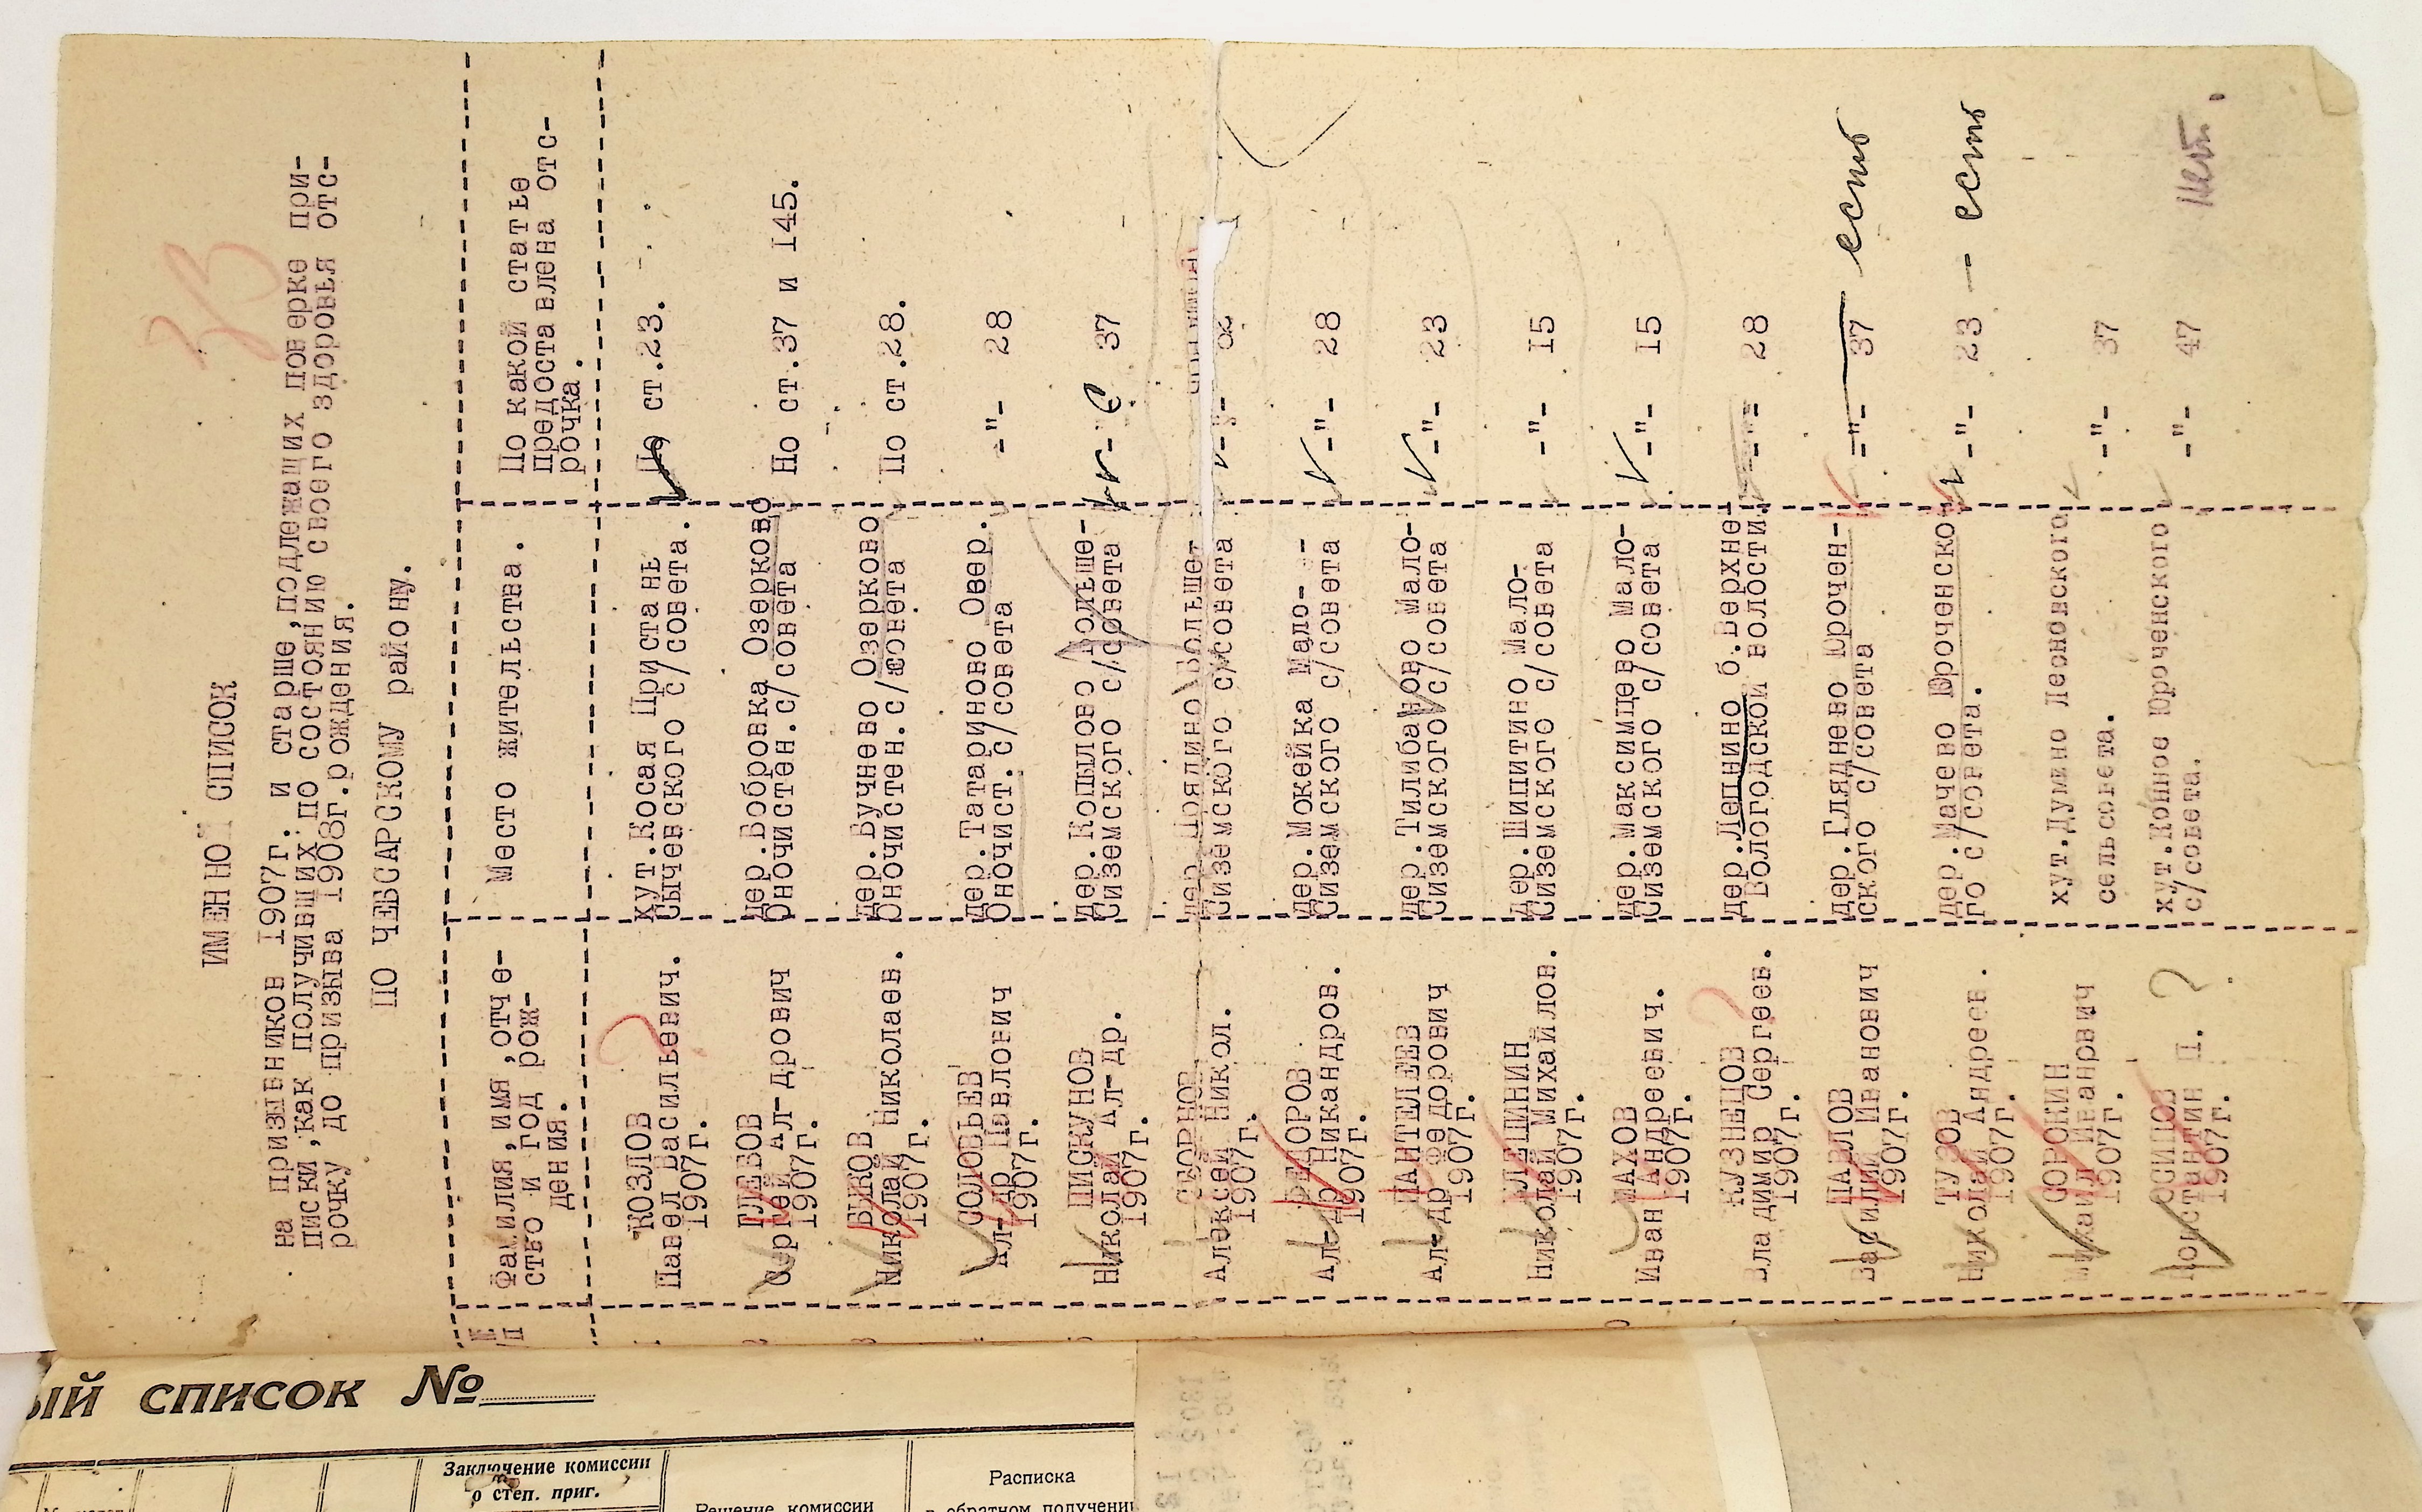 33
ИМЕННОЙ СПИСОК
на призывников 1907г. и старше,подлежащих поверке при-
писки,как получивших по состоянию своего здоровья отс-
рочку до призыва 1908г.рождения.
ПО ЧЕБСАРСКОМУ району.
Фамилия,имя,отче-
ство и год рож-
дения.
Место жительства.
По какой статье
предоставлена отс-
рочка.
КОЗЛОВ
Павел Васильевич.
1907г.
хут.Косая Пристань
Сычевского с/совета.
По ст.23.
ГЛЕБОВ
Сергей Ал-дрович
1907г.
дер.Бобровка Озерково
Оночистен.с/совета
По ст.37 и 145.
БЫКОВ
Николай Николаев.
1907г.
дер.Бучнево Озерково
Оночистен.с/совета
По ст.28.
СОЛОВЬЕВ
Ал-др Павлович
1907г.
дер.Татариново Озер.
Оночист.с/совета
-"- 28
ПИСКУНОВ
Николай Ал-др.
1907г.
дер.Копылово Больше-
Сиземского с/совета
-"- 37
Алексей Никол.
1907г.
Сиземского с/совета
-"-
ФЕДОРОВ
Ал-др Никандров.
1907г.
дер.Мокейка Мало--
Сиземского с/совета
-"- 28
ПАНТЕЛЕЕВ
Ал-др Федорович
1907г.
дер.Тилибаново Мало-
Сиземского с/совета
-"- 23
КЛЕЩИНИН
Николай Михайлов.
1907г.
дер.Шипитино Мало-
Сиземского с/совета
-"- 15
МАХОВ
Иван Андреевич.
1907г.
дер.Максимцево Мало-
Сиземского с/совета
-"- 15
КУЗНЕЦОВ
Владимир Сергеев.
1907г.
дер.Лепнино б.Верхне
Вологодской волости
-"- 28
ПАВЛОВ
Василий Иванович
1907г.
дер.Гляднево Юрочен-
ского с/совета
-"- 37 есть
ТУЗОВ
Николай Андреев.
1907г.
дер.Мачево Юроченско
го с/совета.
-"- 23 — есть
СОРОКИН
Михаил Иванович
1907г.
хут.Думино Леоновского
сельсовета.
-"- 37
ОСИПОВ
Константин П. ?
1907г.
хут.Конное Юроченского
с/совета.
-"- 47 нет.
ЫЙ СПИСОК №
Заключение комиссии
о степ. приг.
Решение комиссии
Расписка